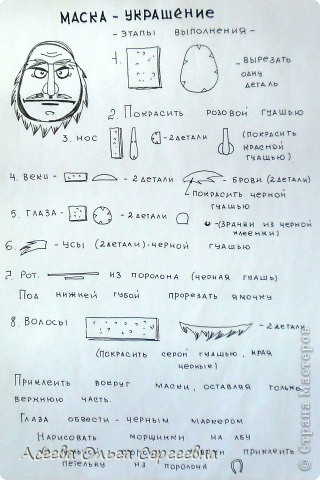 МАСКА - УКРАШЕНИЕ
- ЭТАПЫ ВЫПОЛНЕНИЯ -
1.
- ВЫРЕЗАТЬ
ОДНУ
ДЕТАЛЬ
2. ПОКРАСИТЬ РОЗОВОЙ ГУАШЬЮ
3. НОС
- 2 ДЕТАЛИ
(ПОКРАСИТЬ
КРАСНОЙ
ГУАШЬЮ)
4. ВЕКИ -
- 2 ДЕТАЛИ
- БРОВИ (2 ДЕТАЛИ)
ПОКРАСИТЬ ЧЕРНОЙ
ГУАШЬЮ
5. ГЛАЗА -
- 2 ДЕТАЛИ
- (ЗРАЧКИ ИЗ ЧЕРНОЙ
КЛЕЕНКИ)
6.
- УСЫ (2 ДЕТАЛИ) - ЧЕРНОЙ ГУАШЬЮ
7. РОТ.
ИЗ ПОРОЛОНА (ЧЕРНАЯ ГУАШЬ)
ПОД НИЖНЕЙ ГУБОЙ ПРОРЕЗАТЬ ЯМОЧКУ
8. ВОЛОСЫ
- 2 ДЕТАЛИ
(ПОКРАСИТЬ СЕРОЙ ГУАШЬЮ, КРАЯ
ЧЕРНЫЕ)
ПРИКЛЕИТЬ ВОКРУГ МАСКИ, ОСТАВЛЯЯ ТОЛЬКО
ВЕРХНЮЮ ЧАСТЬ.
ГЛАЗА ОБВЕСТИ - ЧЕРНЫМ МАРКЕРОМ
НАРИСОВАТЬ МОРЩИНКИ НА ЛБУ
ПРИКЛЕИТЬ
Асеева Ольга Сергеевна
ПЕТЕЛЬКУ ИЗ ПОРОЛОНА
© Страна Мастеров